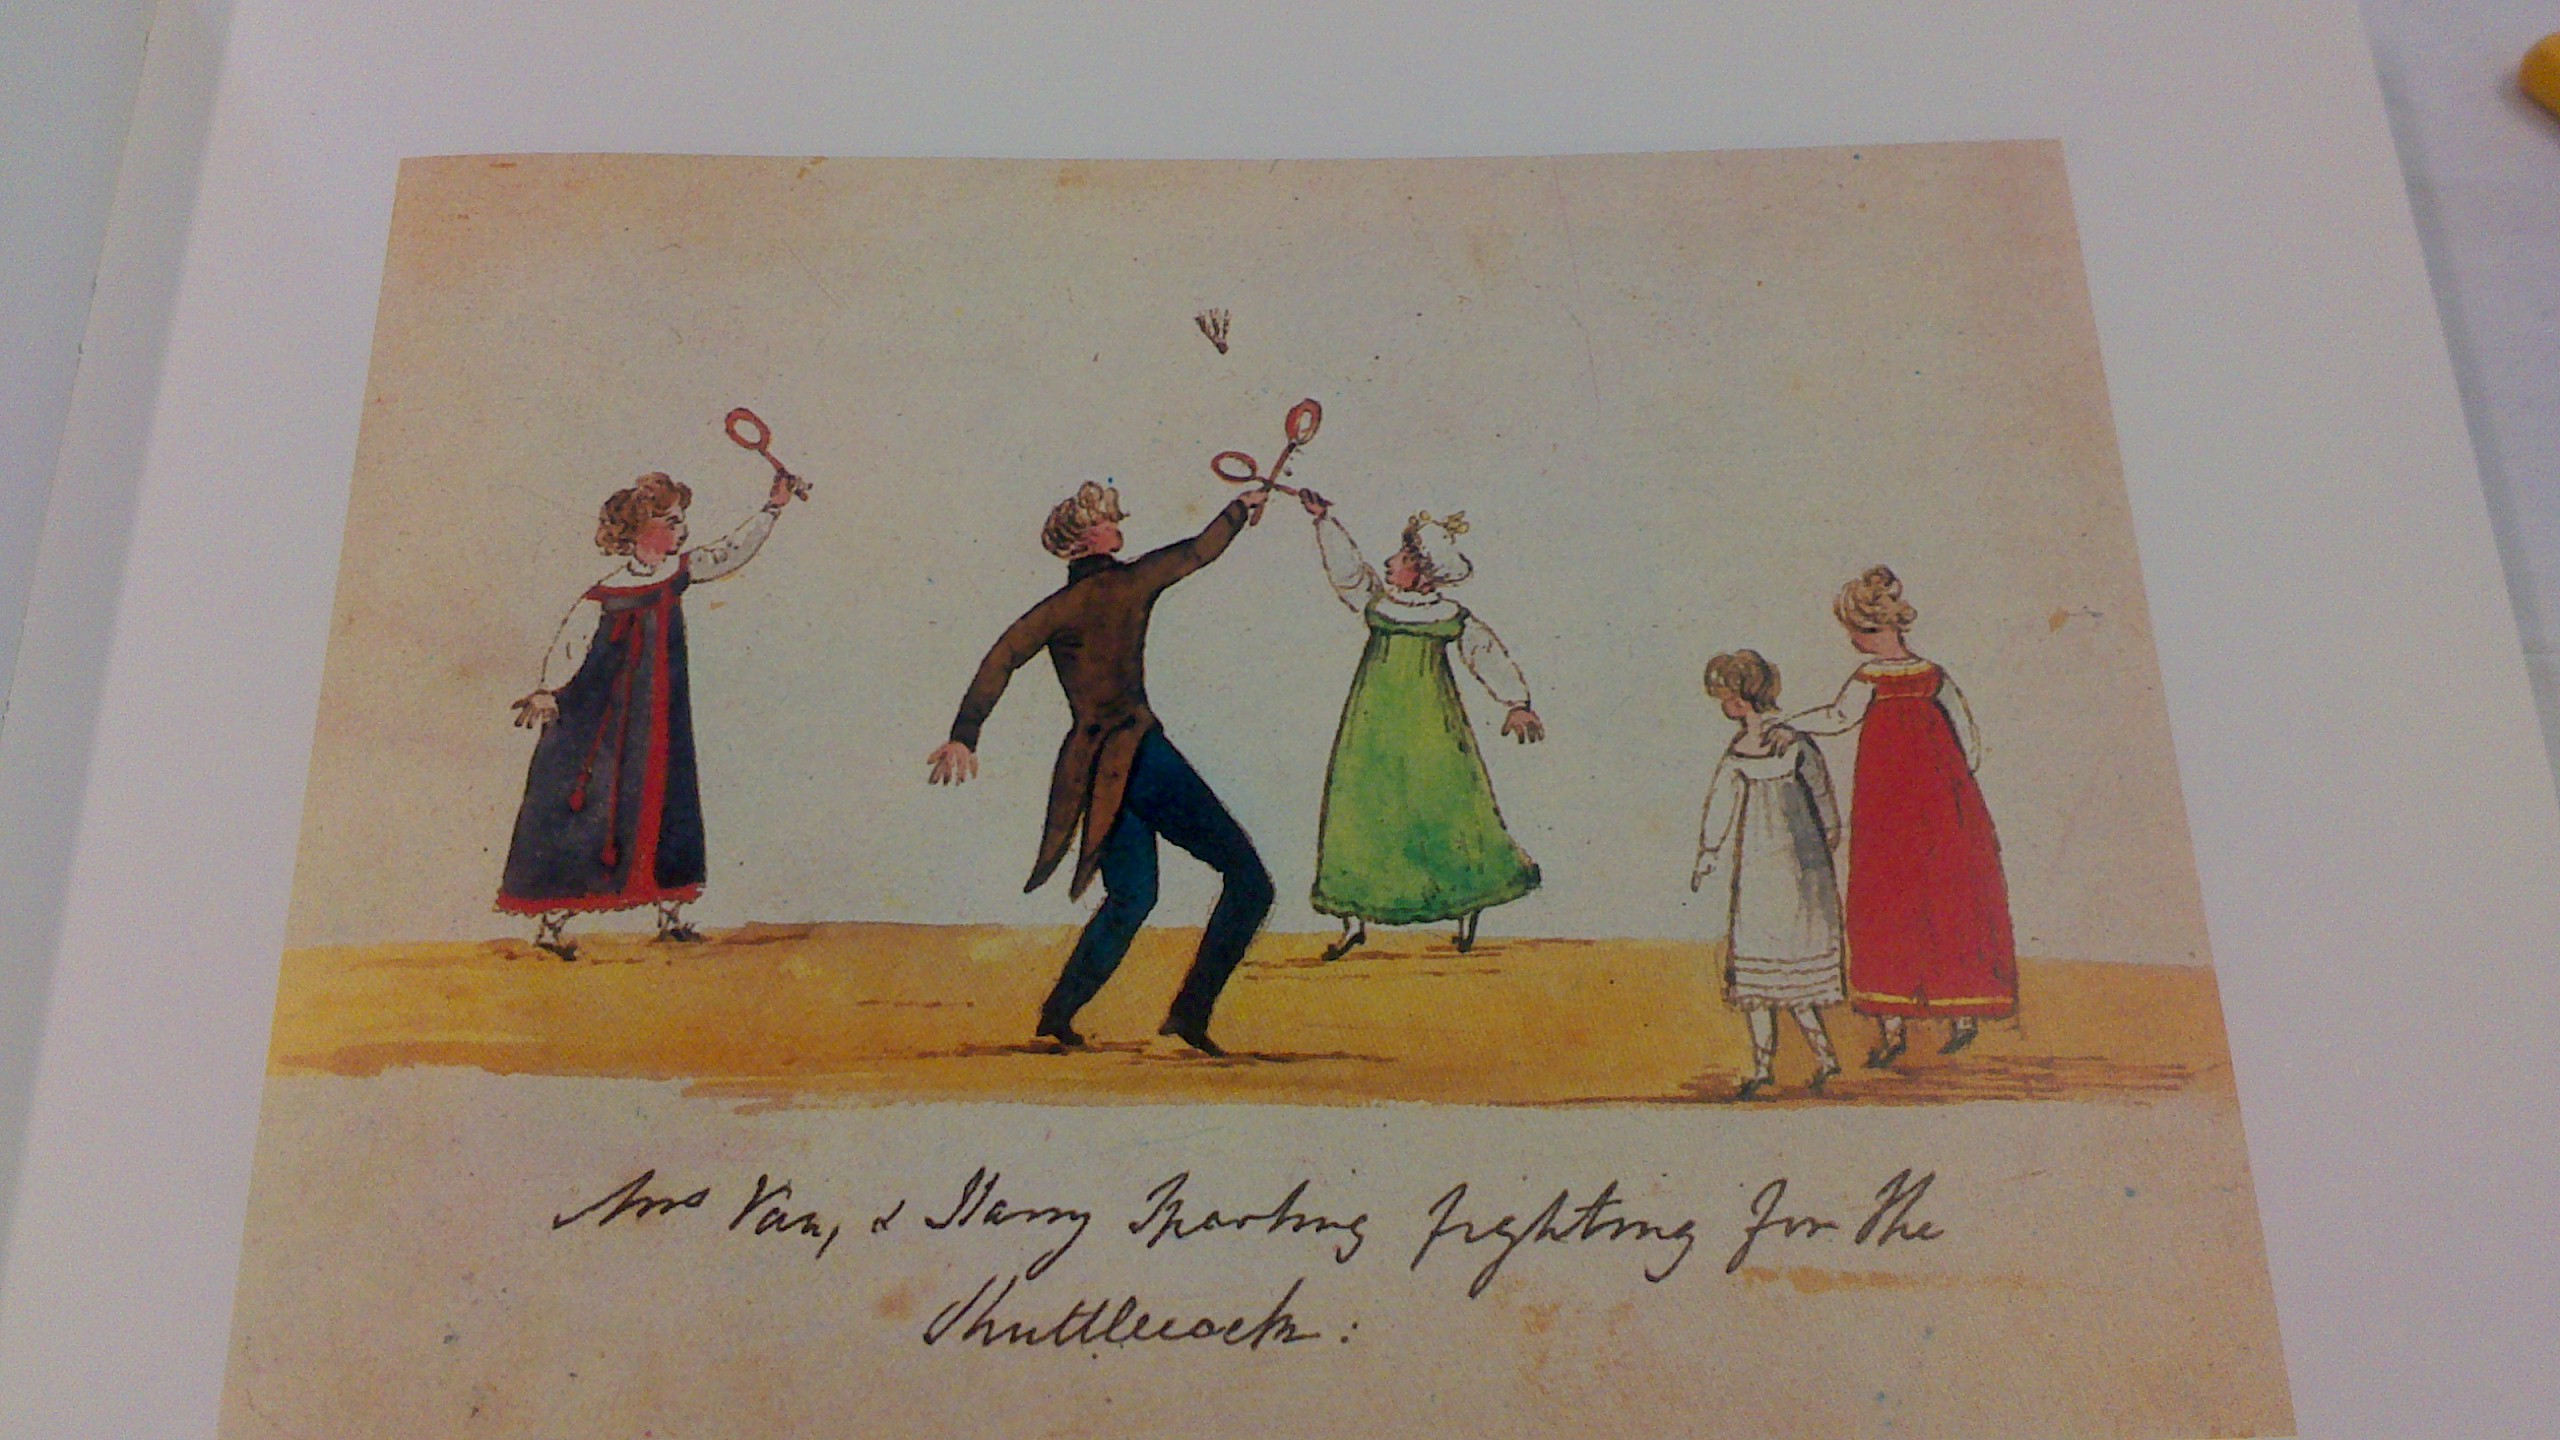 Mrs Van, & Harry Sperling fighting for the
Shuttlecock: